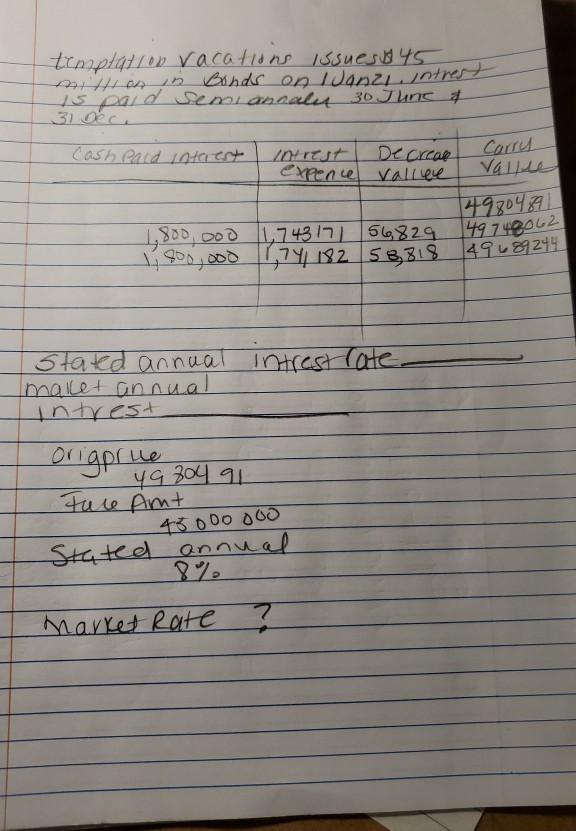 temptation vacations issues $45
million in Bonds on 1 Jan 21. intrest
is paid semi annaly 30 June &
31 Dec.
Cash Paid interest Intrest expence Decreae vallvee Carry Vallue
49804891
1,800,000 1,743171 56,829 49748062
1,800,000 1,741,182 58,818 49689244
Stated annual intrest rate
maket annual
intrest
Origprue
49 304 91
Face Amt
45 000 000
Stated annual
8%
Market Rate ?